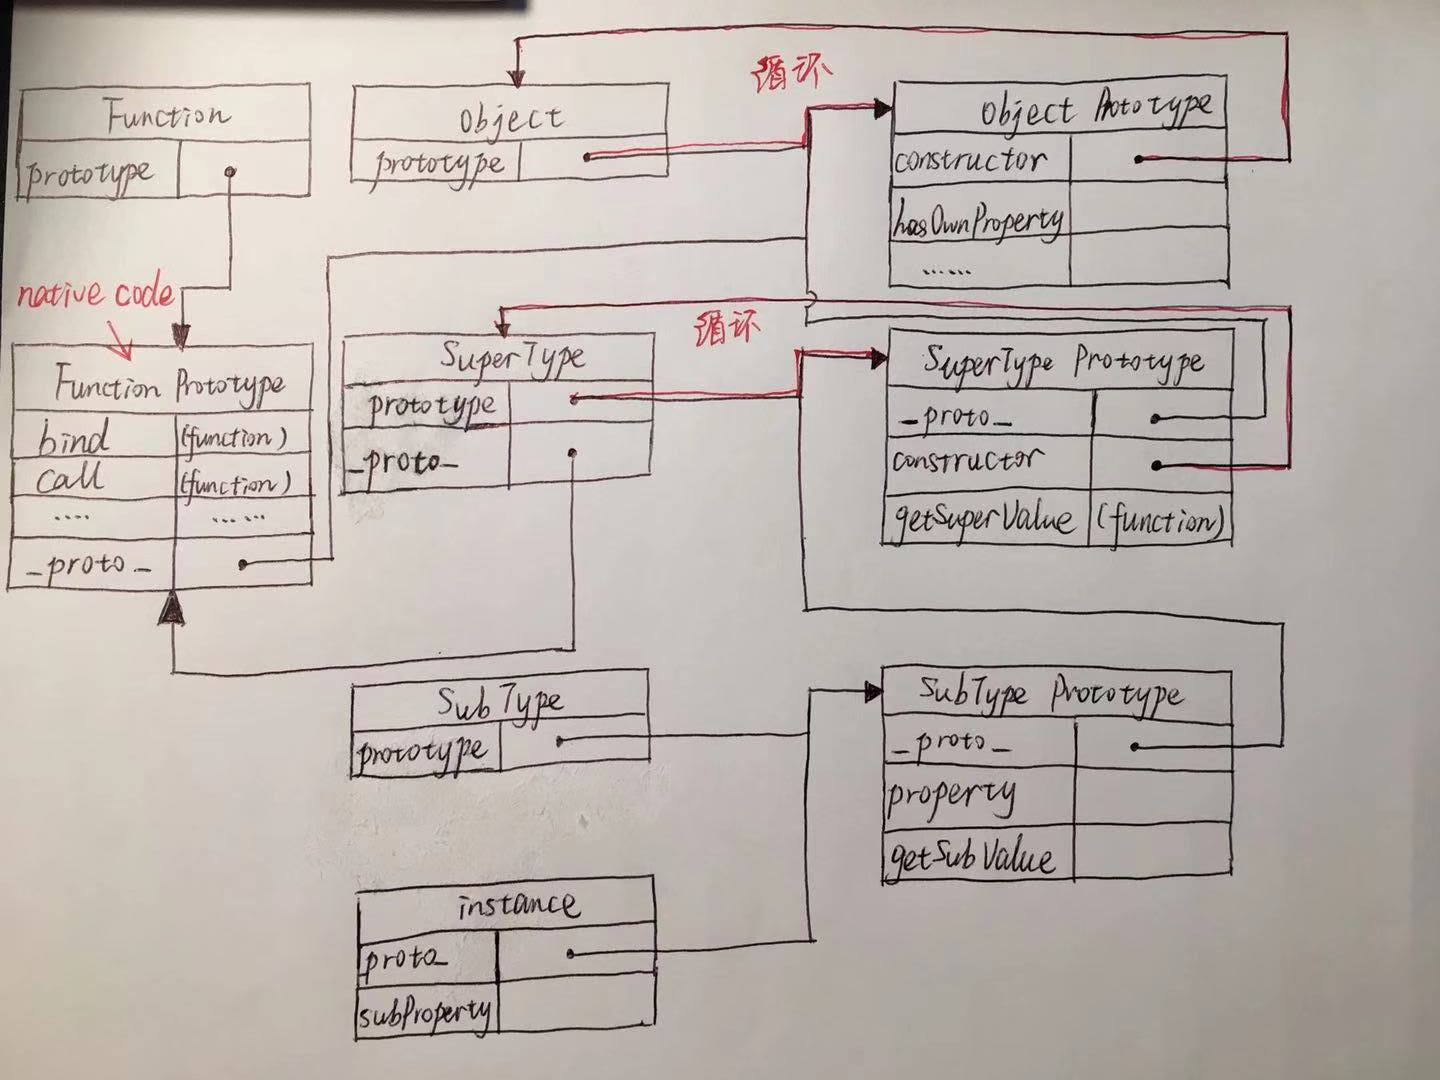 循环
Function
prototype
object
prototype
object Prototype
constructor
hasOwnProperty
......
native code
循环
Function Prototype
bind (function)
call (function)
.... ......
_proto_
SuperType
prototype
_proto_
SuperType Prototype
_proto_
constructor
getSuperValue (function)
SubType
prototype
SubType Prototype
_proto_
property
getSubValue
instance
proto_
subProperty